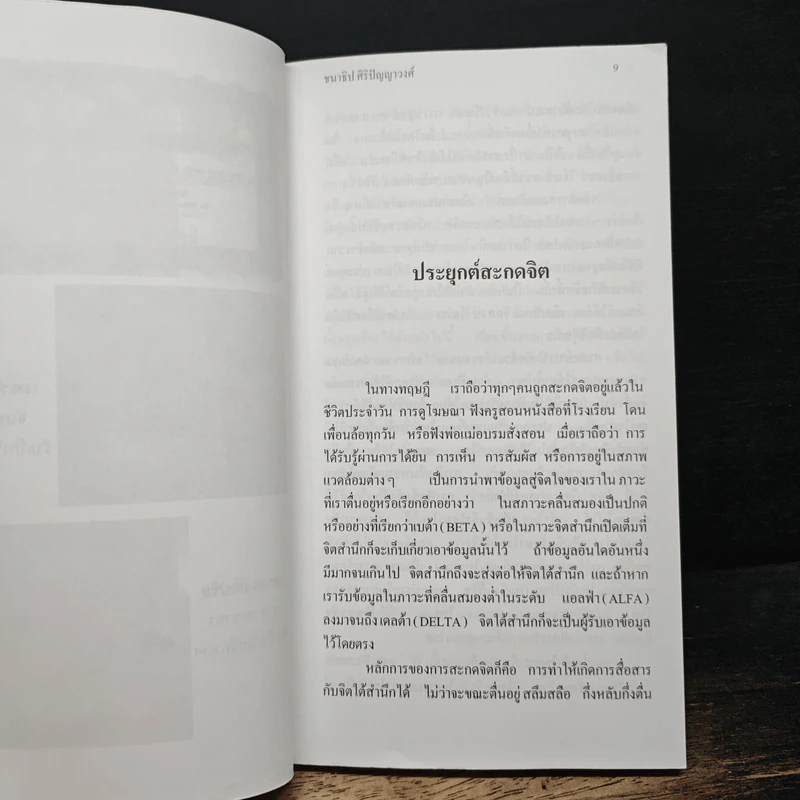 ชนาธิป ศิริปัญญาวงศ์ 9
ประยุกต์สะกดจิต
ในทางทฤษฎี เราถือว่าทุกๆคนถูกสะกดจิตอยู่แล้วใน
ชีวิตประจำวัน การดูโฆษณา ฟังครูสอนหนังสือที่โรงเรียน โดน
เพื่อนล้อทุกวัน หรือฟังพ่อแม่อบรมสั่งสอน เมื่อเราถือว่า การ
ได้รับรู้ผ่านการได้ยิน การเห็น การสัมผัส หรือการอยู่ในสภาพ
แวดล้อมต่าง ๆ เป็นการนำพาข้อมูลสู่จิตใจของเราใน ภาวะ
ที่เราตื่นอยู่หรือเรียกอีกอย่างว่า ในสภาวะคลื่นสมองเป็นปกติ
หรืออย่างที่เรียกว่าเบต้า (BETA) หรือในภาวะจิตสำนึกเปิดเต็มที่
จิตสำนึกก็จะเก็บเกี่ยวเอาข้อมูลนั้นไว้ ถ้าข้อมูลอันใดอันหนึ่ง
มีมากจนเกินไป จิตสำนึกถึงจะส่งต่อให้จิตใต้สำนึก และถ้าหาก
เรารับข้อมูลในภาวะที่คลื่นสมองต่ำในระดับ แอลฟ่า (ALFA)
ลงมาจนถึง เดลต้า (DELTA) จิตใต้สำนึกก็จะเป็นผู้รับเอาข้อมูล
ไว้โดยตรง
หลักการของการสะกดจิตก็คือ การทำให้เกิดการสื่อสาร
กับจิตใต้สำนึกได้ ไม่ว่าจะขณะตื่นอยู่ สลึมสลือ กึ่งหลับกึ่งตื่น